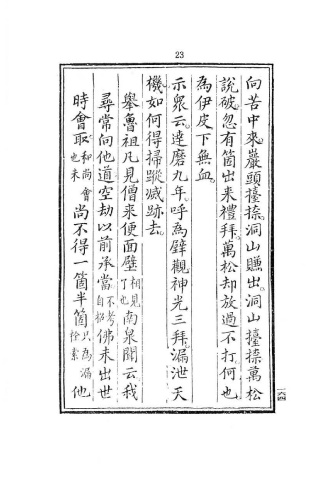 23
向苦中來。巖頭擡捺。洞山賺出。洞山擡捺。萬松
說破。忽有箇出來禮拜。萬松却放過不打。何也
為伊皮下無血。
示眾云。達磨九年。呼為壁觀。神光三拜。漏泄天
機。如何得掃蹤滅跡去。
舉魯祖凡見僧來便面壁 相見了也 南泉聞云我
尋常向他道空劫以前承當 不考自招 佛未出世
時會取 和尚會也未 尚不得一箇半箇 只為漏索 他
一六四